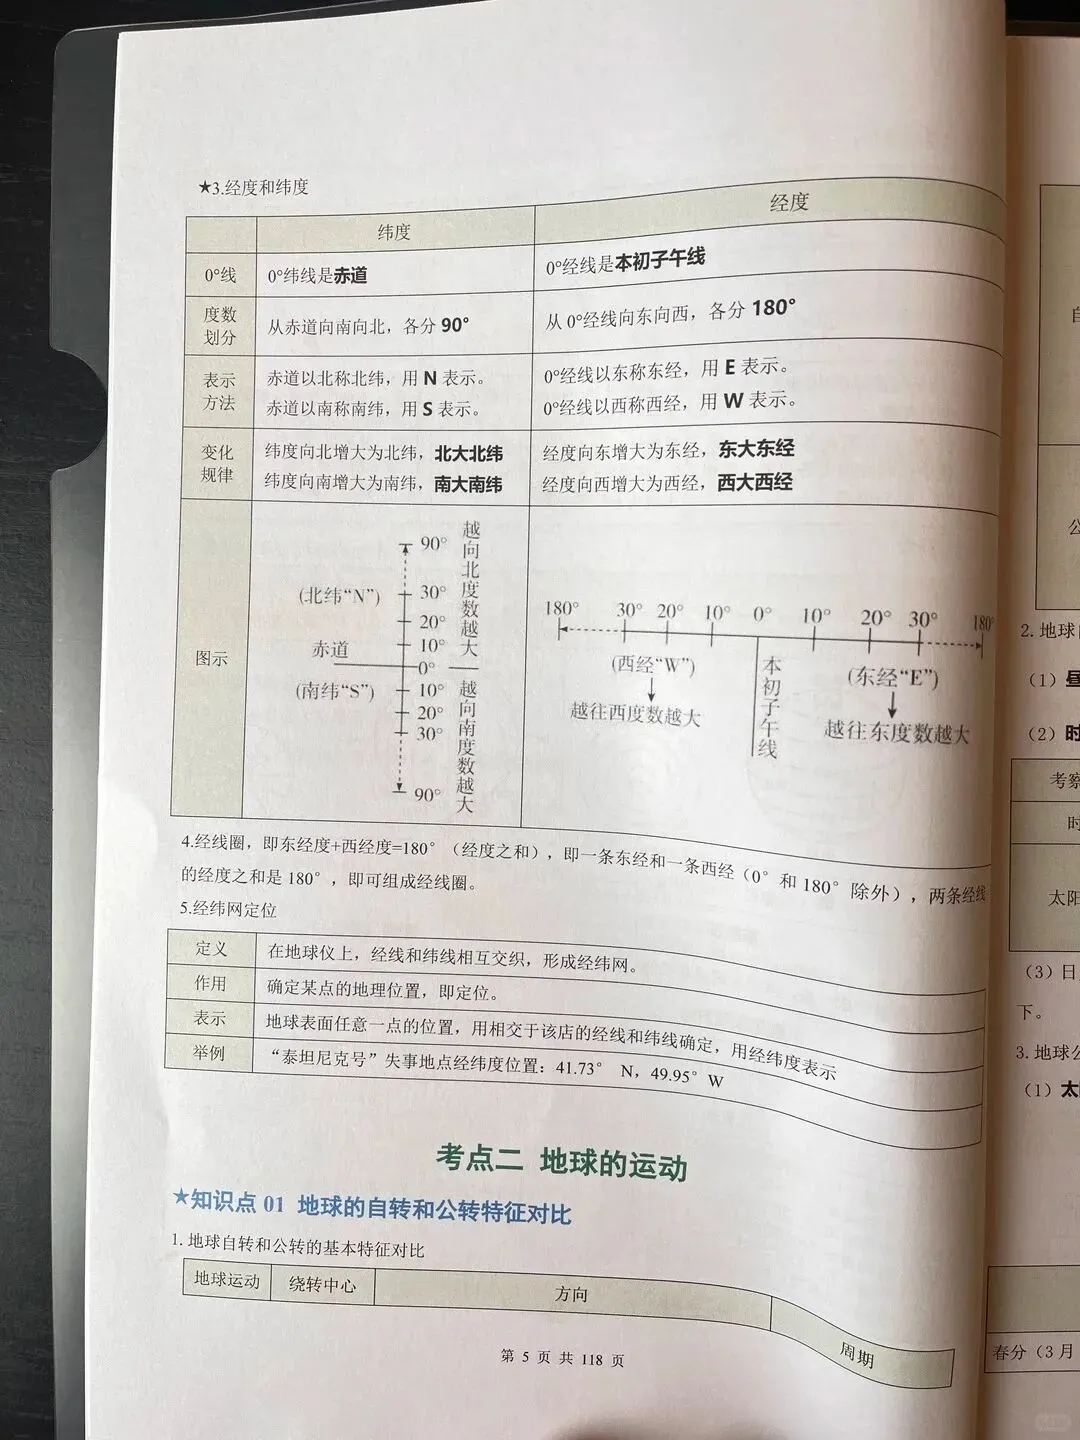 ★3.经度和纬度
纬度
经度
0°线
0°纬线是赤道
0°经线是本初子午线
度数
划分
从赤道向南向北，各分 90°
从 0°经线向东向西，各分 180°
表示
方法
赤道以北称北纬，用 N 表示。
赤道以南称南纬，用 S 表示。
0°经线以东称东经，用 E 表示。
0°经线以西称西经，用 W 表示。
变化
规律
纬度向北增大为北纬，北大北纬
纬度向南增大为南纬，南大南纬
经度向东增大为东经，东大东经
经度向西增大为西经，西大西经
图示
90°
(北纬“N”)
30°
20°
10°
赤道
0°
(南纬“S”)
10°
20°
30°
90°
越向北度数越大
越向南度数越大
180° 30° 20° 10° 0° 10° 20° 30° 180°
(西经“W”)
越往西度数越大
本初子午线
(东经“E”)
越往东度数越大
4.经线圈，即东经度+西经度=180°（经度之和），即一条东经和一条西经（0°和180°除外），两条经线
的经度之和是 180°，即可组成经线圈。
5.经纬网定位
定义
在地球仪上，经线和纬线相互交织，形成经纬网。
作用
确定某点的地理位置，即定位。
表示
地球表面任意一点的位置，用相交于该店的经线和纬线确定，用经纬度表示
举例
“泰坦尼克号”失事地点经纬度位置：41.73° N，49.95°W
考点二 地球的运动
★知识点 01 地球的自转和公转特征对比
1. 地球自转和公转的基本特征对比
地球运动
绕转中心
方向
周期
第 5 页 共 118 页
2.地球
（1）
（2）时
考察
时
太阳
（3）日
下。
3.地球公
（1）太
春分（3月